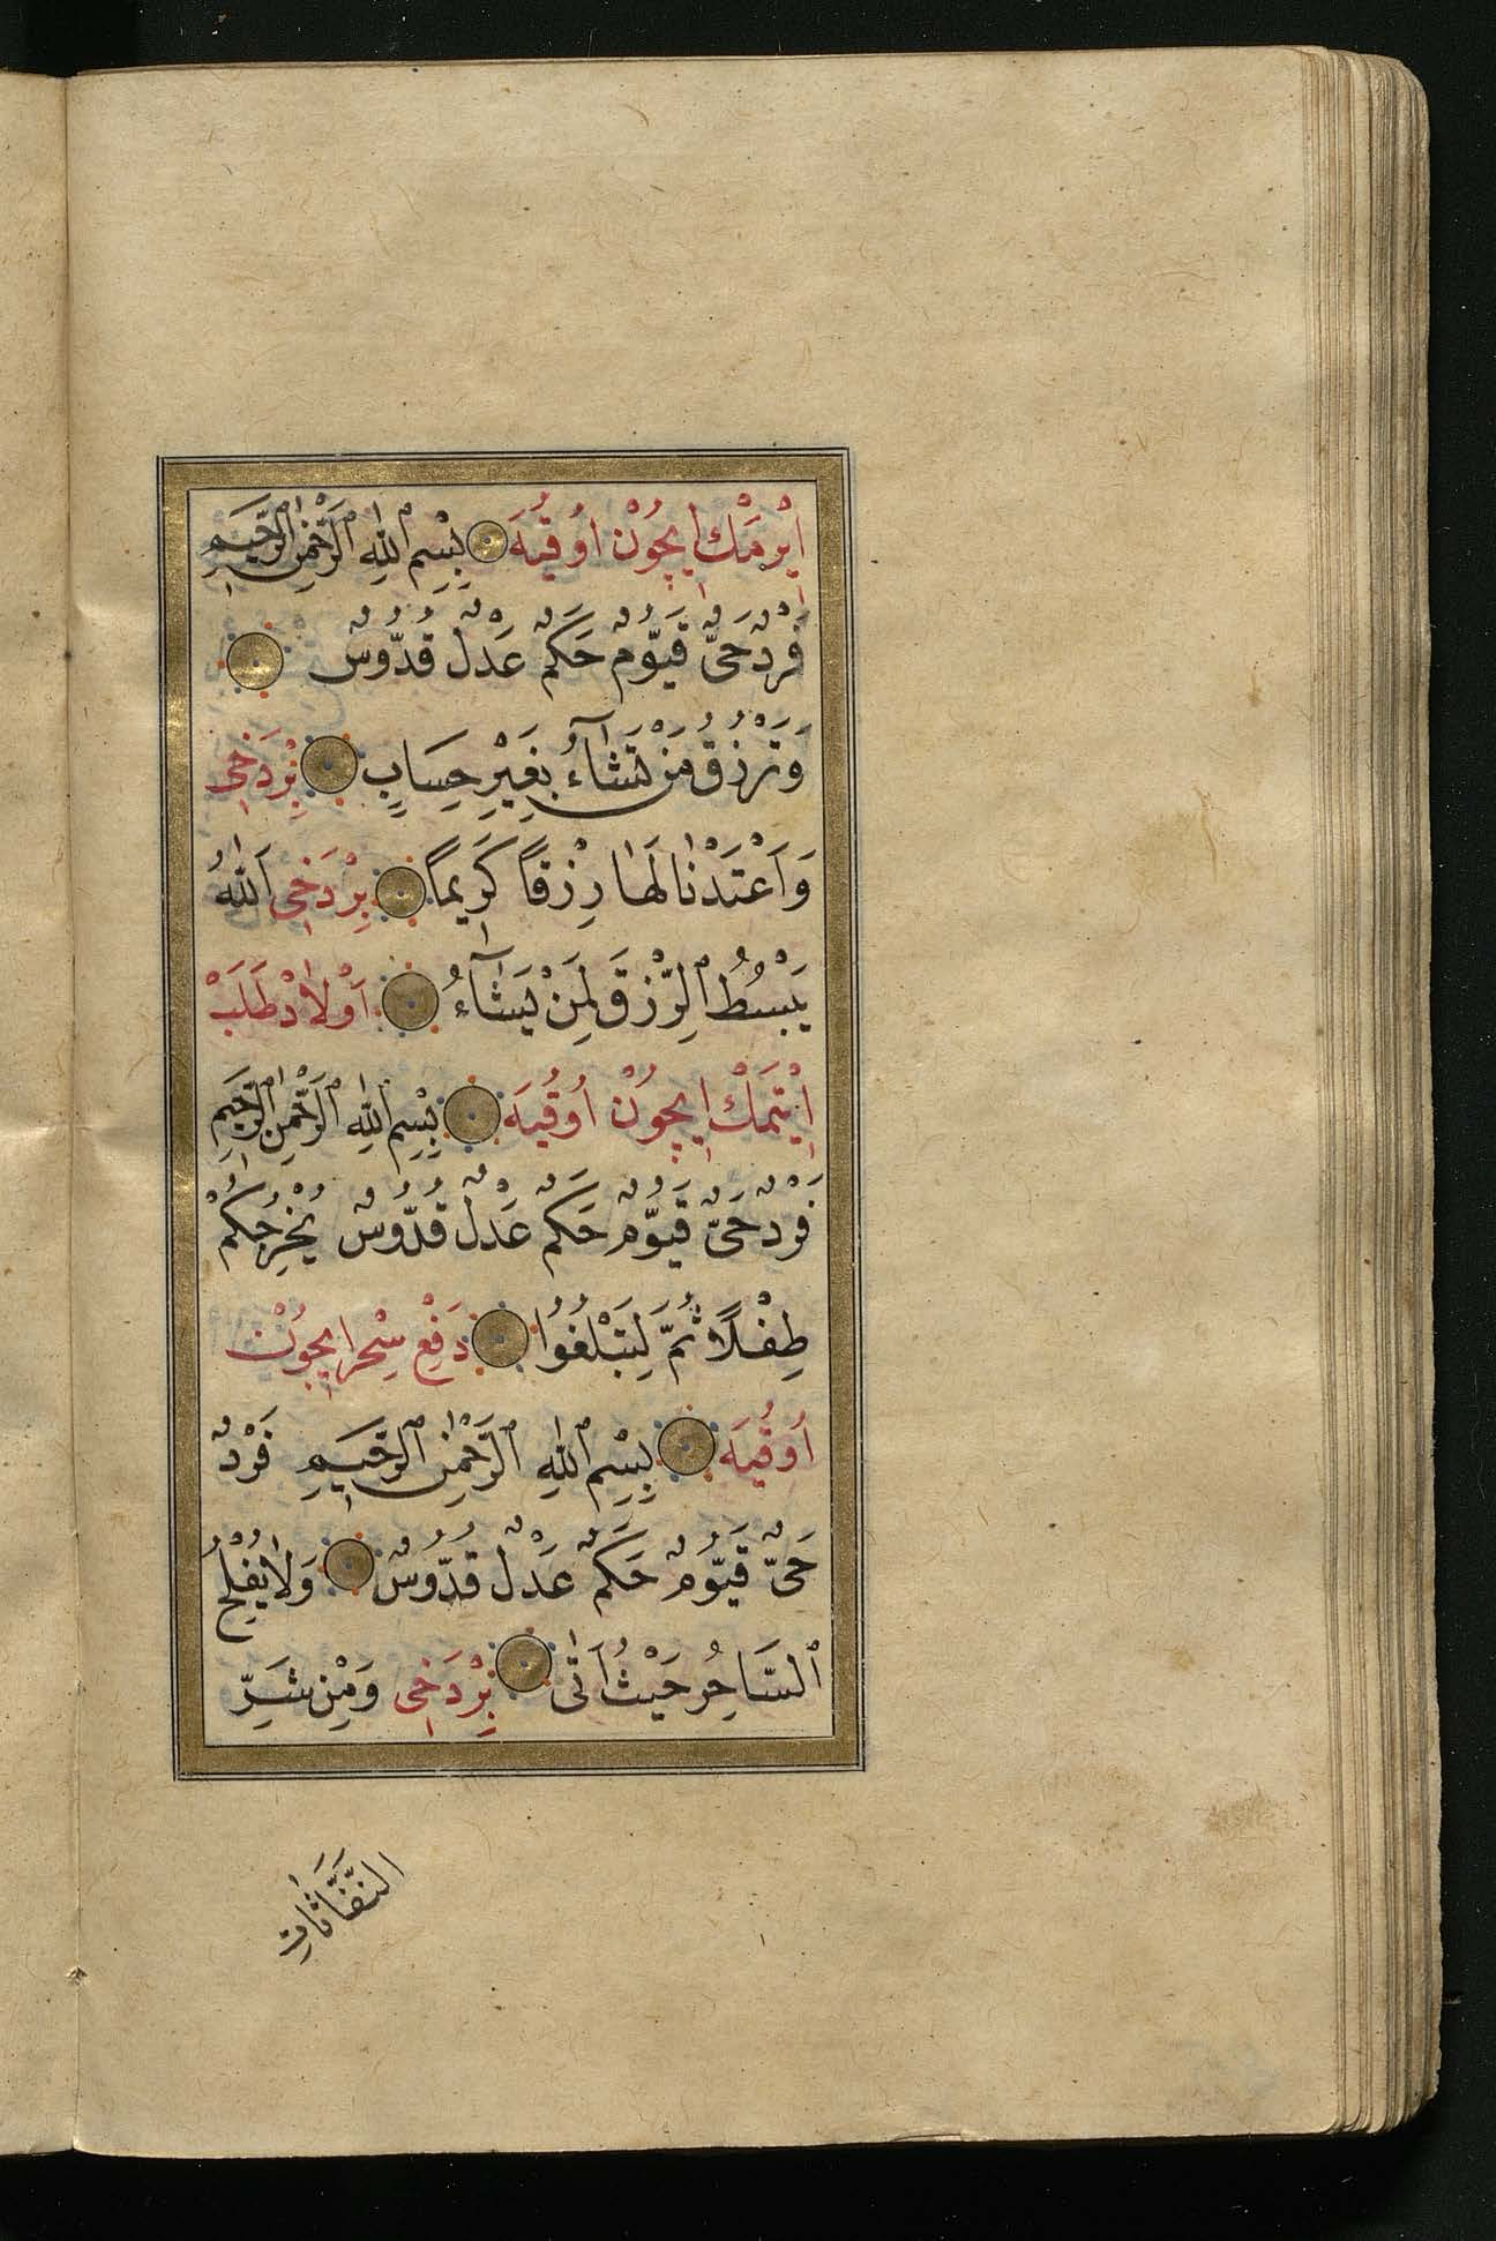 اِيْرمَكْ اِيچُوْن اوُقُيَه بِسْمِ اللّٰهِ الرَّحْمٰنِ الرَّحِيمِ
فَرْدٌ حَىٌّ قَيُّومٌ حَكَمٌ عَدْلٌ قُدُّوسٌ
وَتَرْزُقُ مَنْ تَشَآءُ بِغَيْرِ حِسَابٍ بِرْدَخِى
وَاَعْتَدْنَا لَهَا رِزْقًا كَرِيمًا بِرْدَخِى اَللّٰهُ
يَبْسُطُ الرِّزْقَ لِمَنْ يَشَآءُ اَوْلاَدْ طَلَبْ
اِيْتمَكْ اِيچُوْن اوُقُيَه بِسْمِ اللّٰهِ الرَّحْمٰنِ الرَّحِيمِ
فَرْدٌ حَىٌّ قَيُّومٌ حَكَمٌ عَدْلٌ قُدُّوسٌ يُخْرِجُكُمْ
طِفْلًا ثُمَّ لِتَبْلُغُوا دَفْعِ سِحْر اِيچُوْن
اوُقُيَه بِسْمِ اللّٰهِ الرَّحْمٰنِ الرَّحِيمِ فَرْدٌ
حَىٌّ قَيُّومٌ حَكَمٌ عَدْلٌ قُدُّوسٌ وَلاَ يُفْلِحُ
السَّاحِرُ حَيْثُ اَتٰى بِرْدَخِى وَمِنْ شَرِّ
النَّفَّاثَاتِ